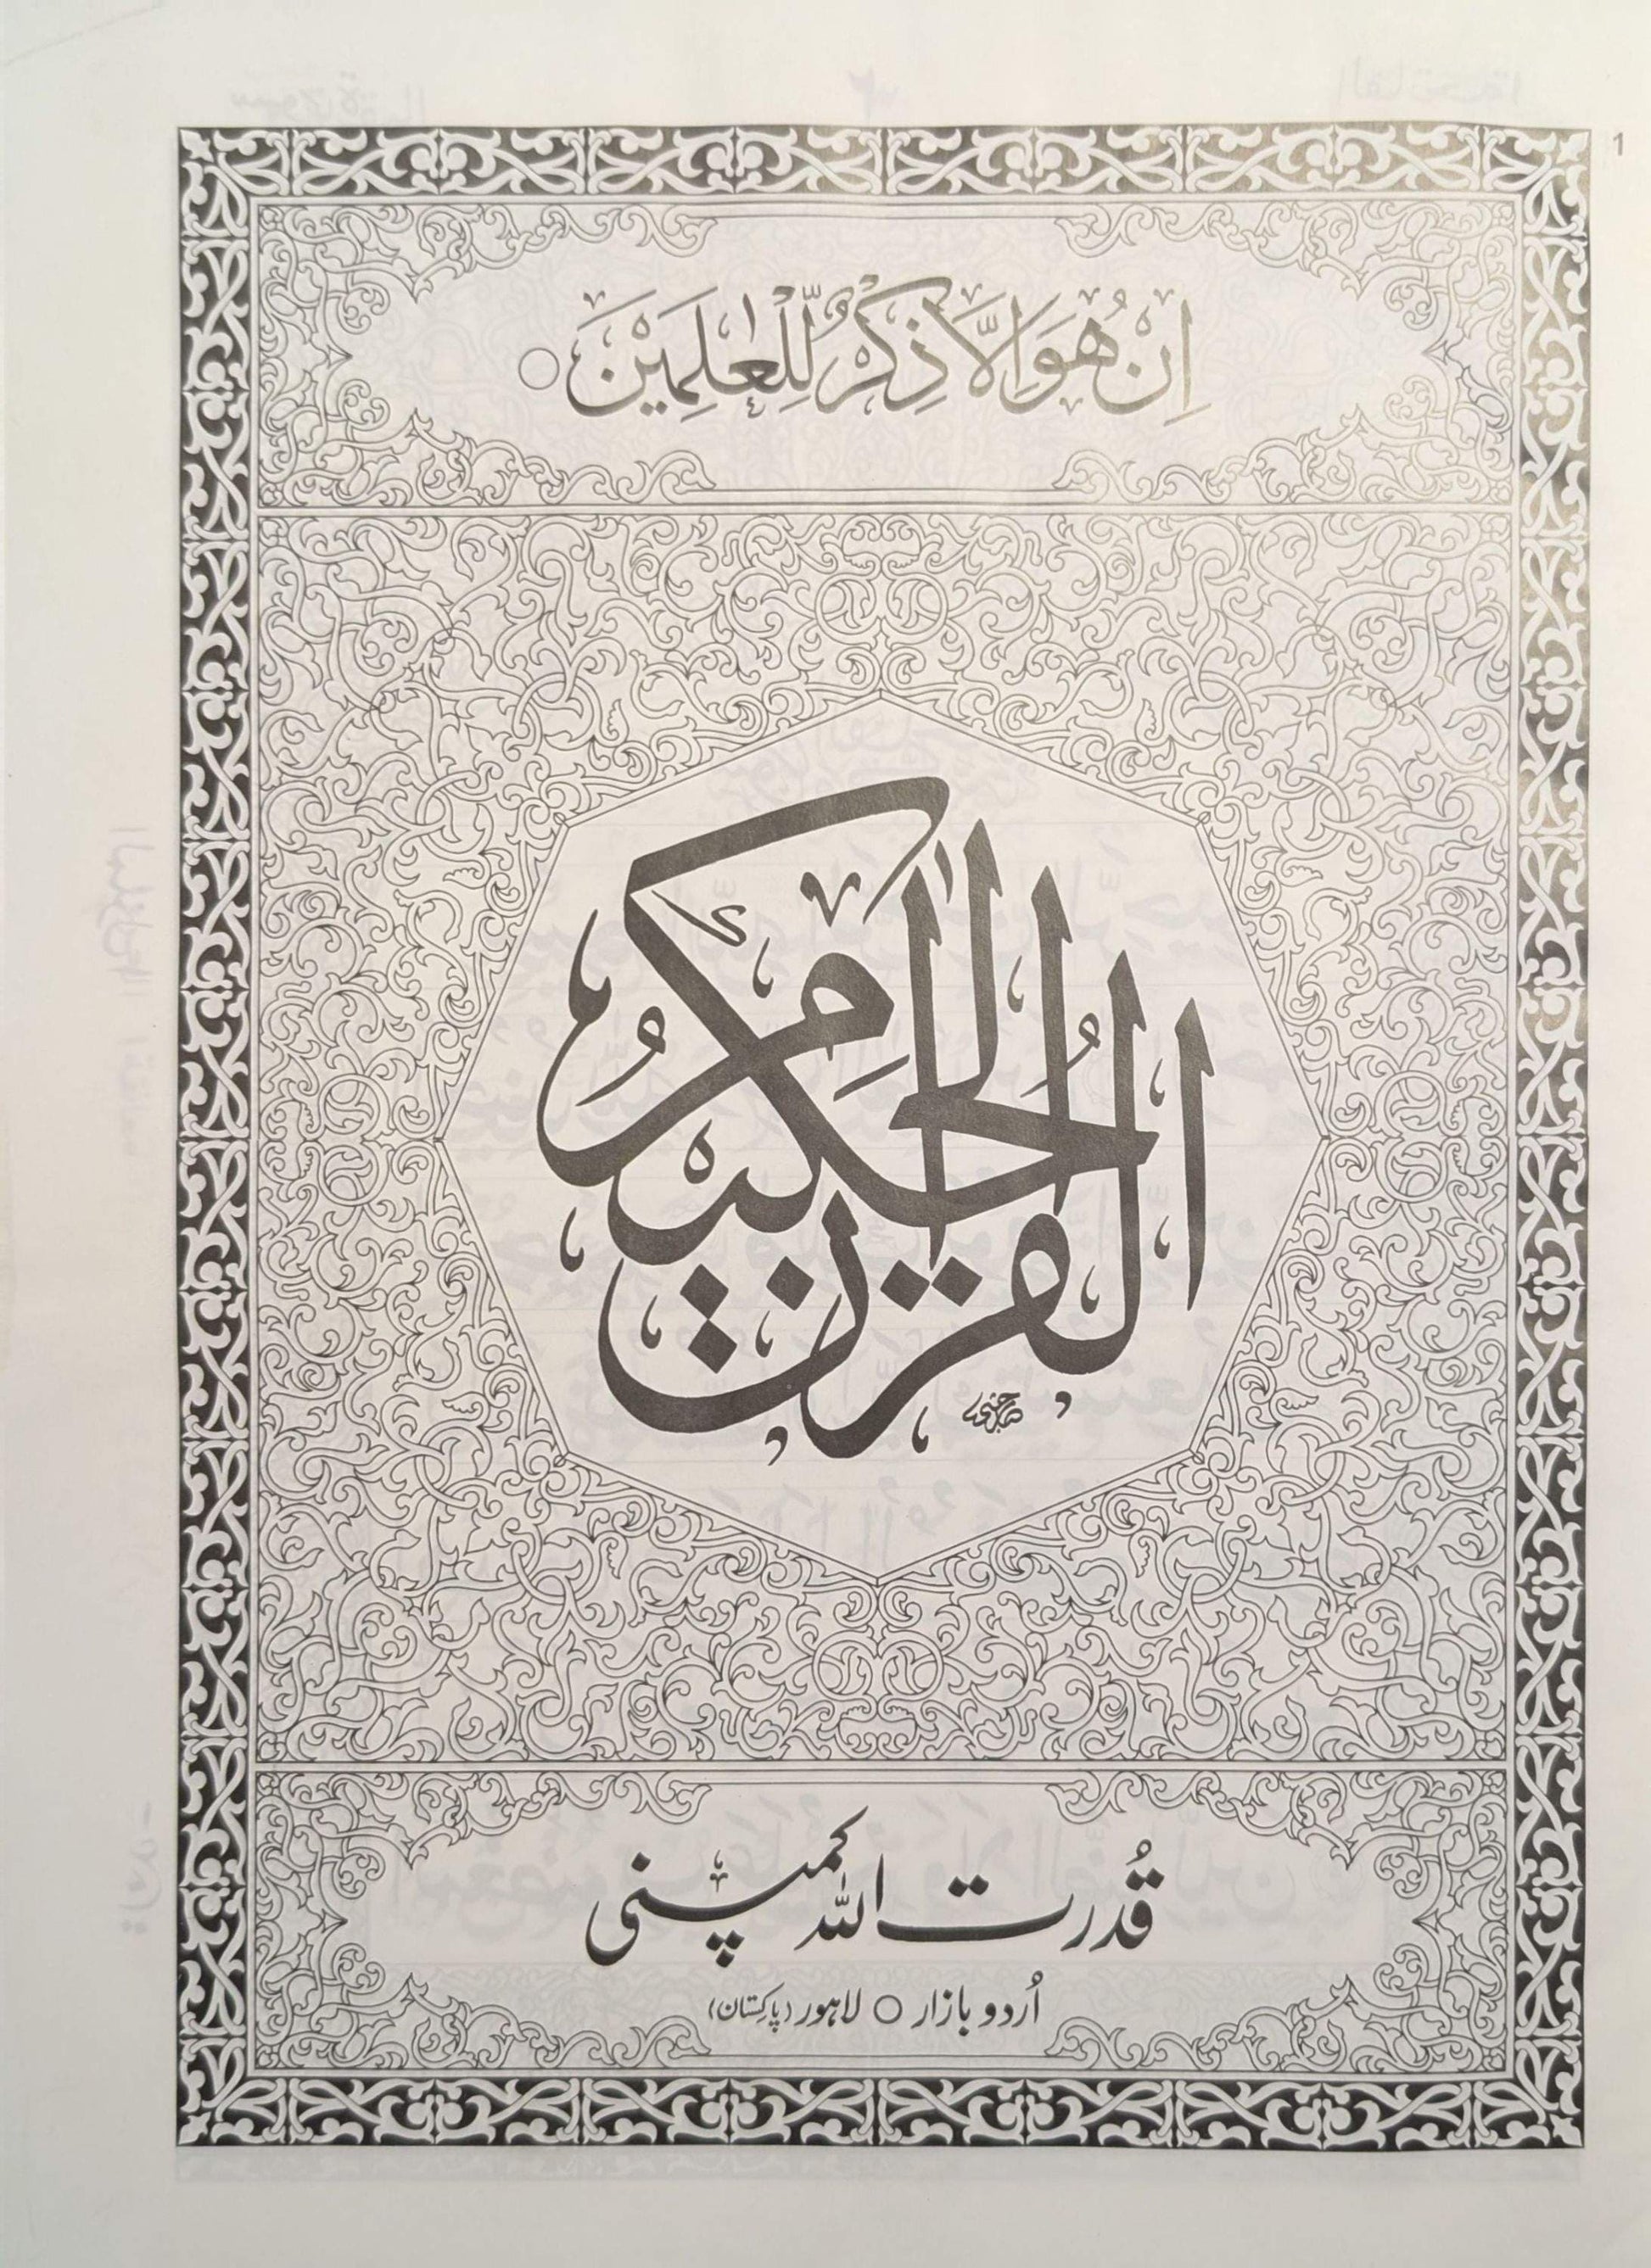 1
اِنْ هُوَ اِلَّا ذِكْرٌ لِّلْعٰلَمِيْنَ ○
الْقُرْاٰنُ الْحَكِيْمُ
قُدرت اللہ کمپنی
اُردو بازار ○ لاہور (پاکستان)